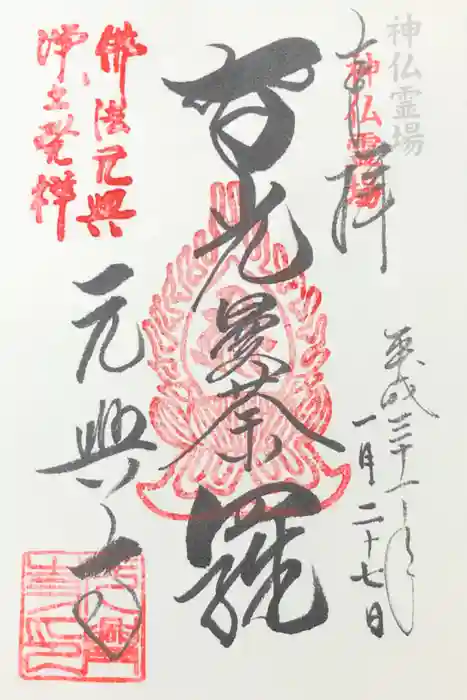 神仏霊場
神仏霊場
奉拝
平成三十一年
一月二十七日
智光曼荼羅
佛法元興
浄土発祥
元興寺